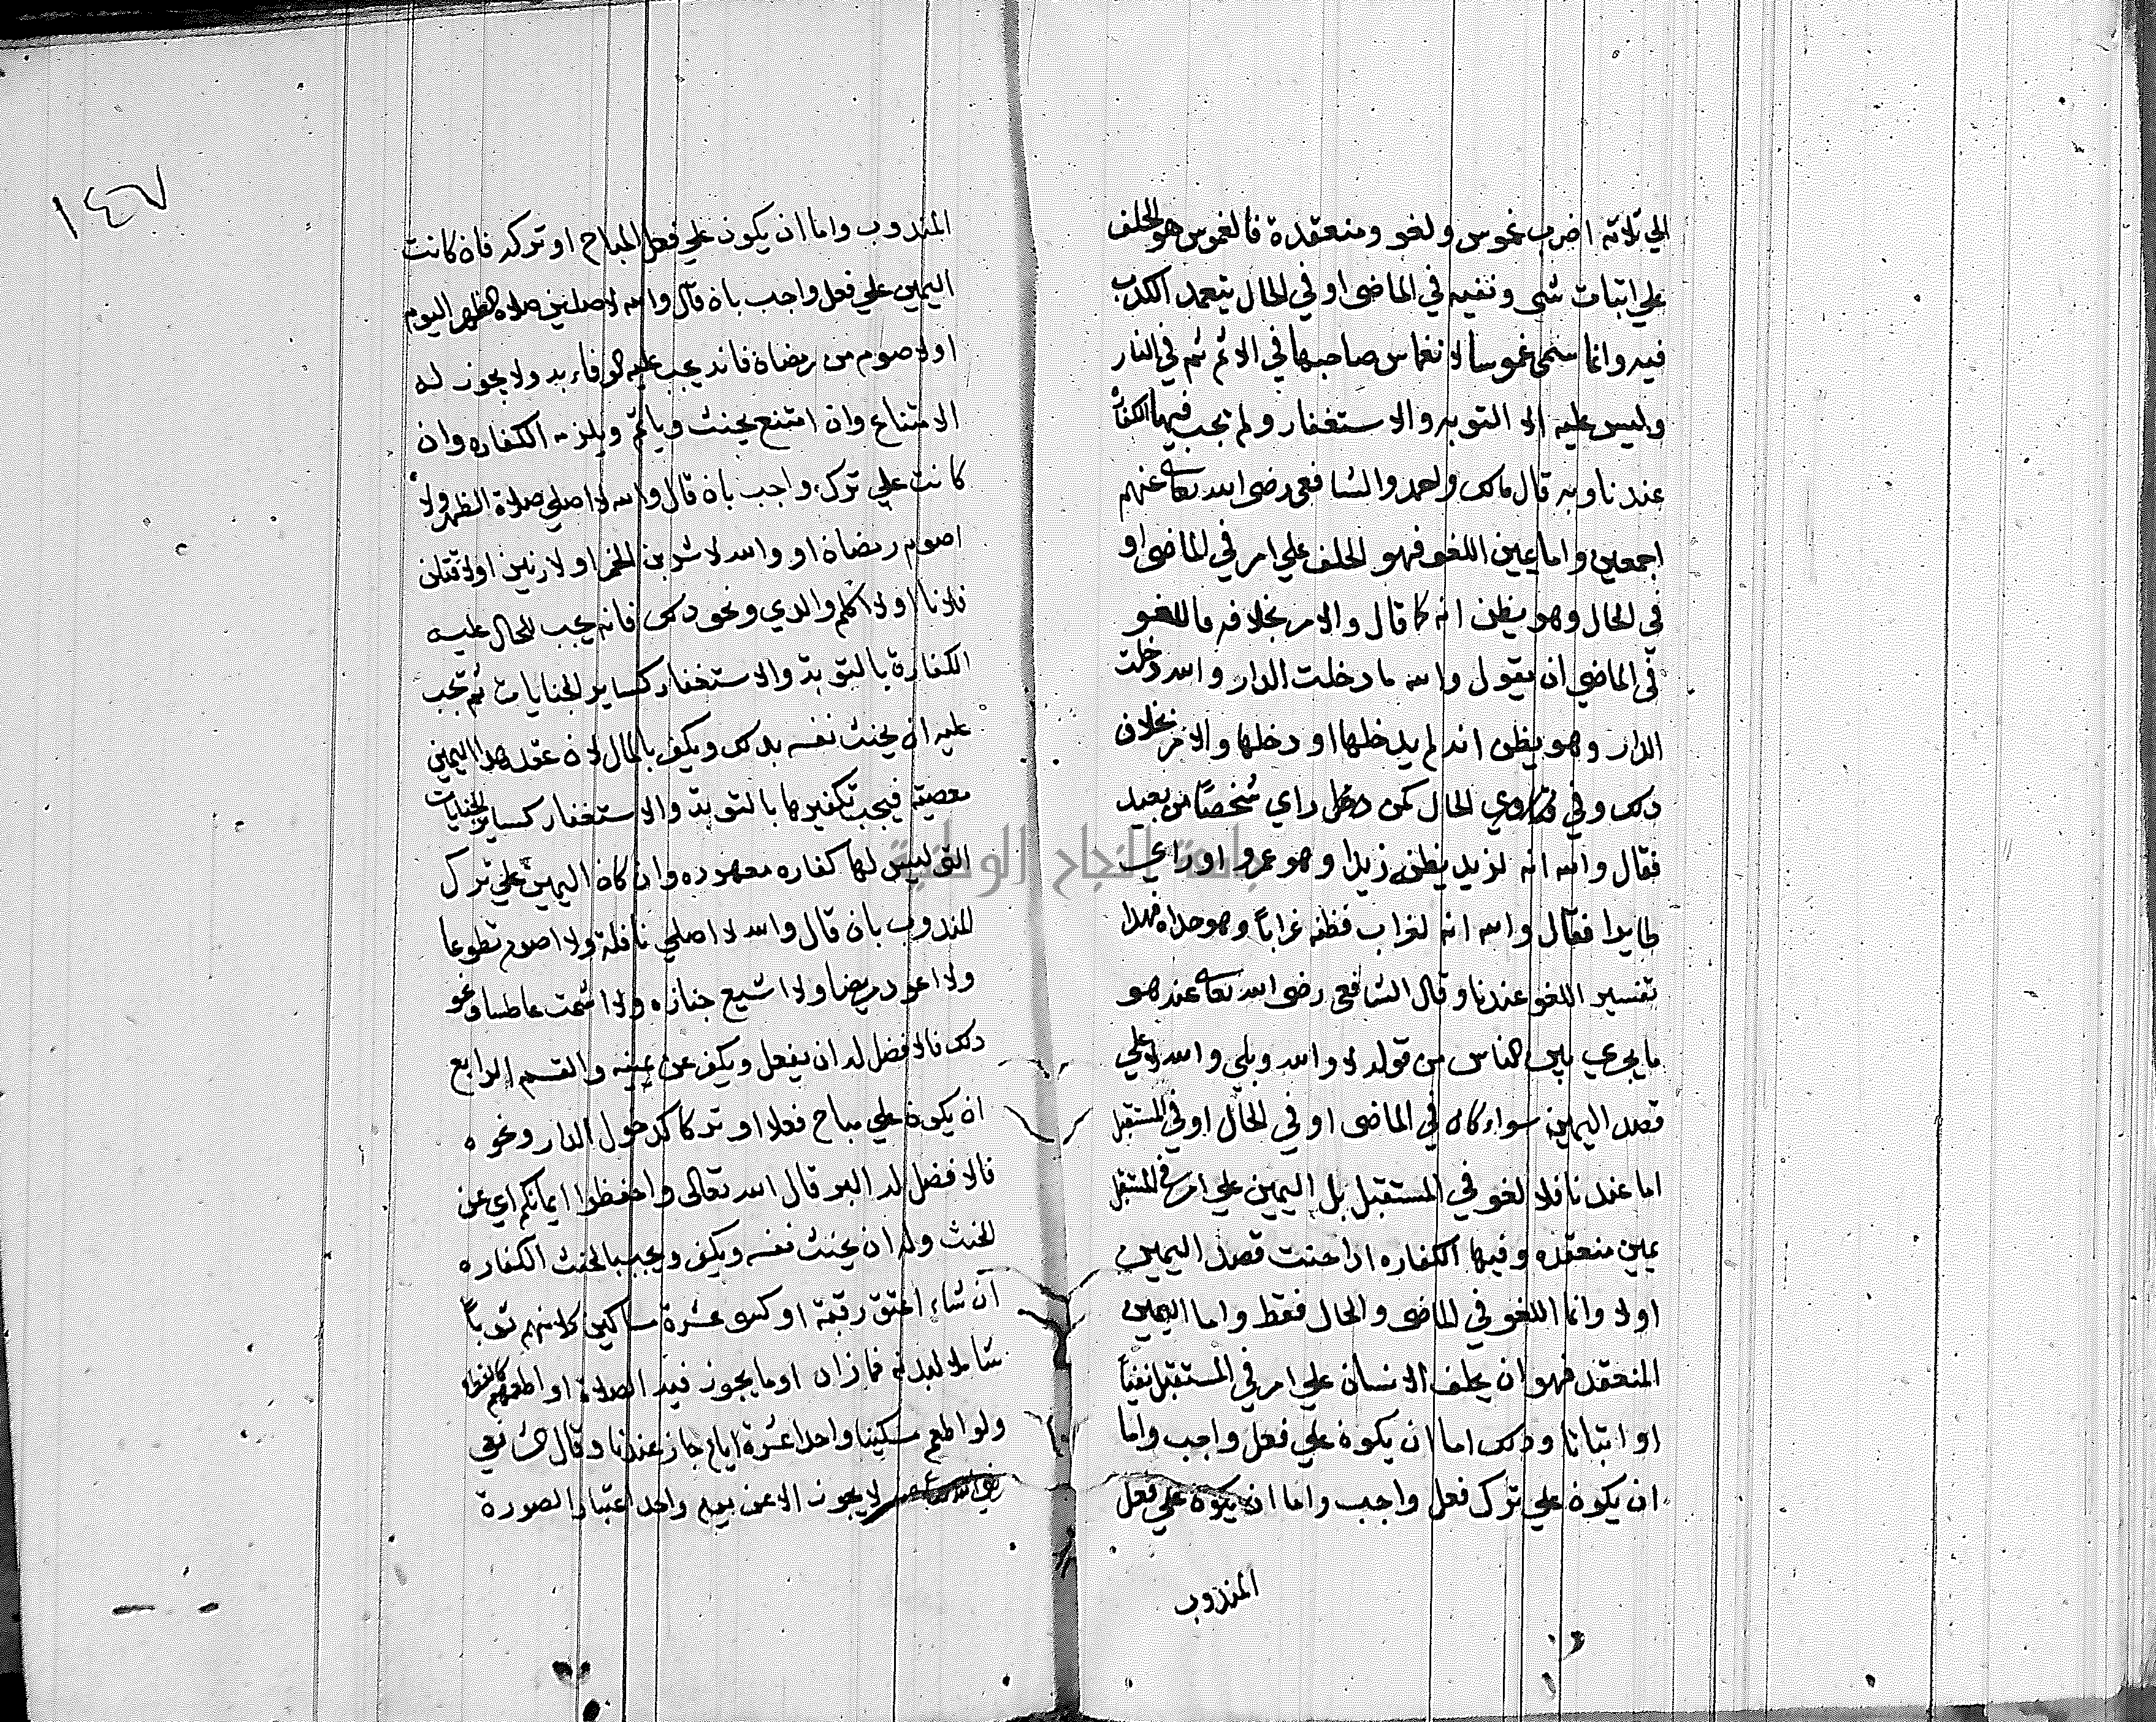 الي تلاته اضرب غموس ولغو ومنعقدة فالغموس هو الحلف
علي اتبات شي ونفيه في الماضي او في الحال يتعمد الكدب
فيه وانما سمي غموسا لانغماس صاحبها في الاثم ثم في النار
وليس عليه الا التوبه والاستغفار ولم تجب فيها الكفارة
عندنا وبه قال مالك واحمد والشافعي رضي الله تعالى عنهم
اجمعين واما يمين اللغو فهو الحلف علي امر في الماضي او
في الحال وهو يظن انه كما قال والامر بخلافه فاللغو
في الماضي ان يقول والله ما دخلت الدار والله دخلت
الدار وهو يظن انه لم يدخلها او دخلها والامر بخلاف
دلك وفي الحال كمن راي شخصًا من بعيد
فقال والله انه لزيد يظنه زيدا وهو عمرو او راي
طايرا فقال والله انه لغراب فظنه غرابًا وهو حداه فهدا
تفسير اللغو عندنا وقال الشافعي رضي الله تعالى عنه هو
ما يجري بين الناس من قوله لا والله وبلي والله لا علي
قصد اليمين سواء كان في الماضي او في الحال او في المستقبل
اما عندنا فلا لغو في المستقبل بل اليمين علي امر في المستقبل
يمين منعقده وفيها الكفاره ادا حنت قصد اليمين
اولا وانما اللغو في الماضي والحال فقط واما اليمين
المنعقد فهو ان يحلف الانسان علي امر في المستقبل نفيًا
او اتباتا ودلك اما ان يكون علي فعل واجب واما
ان يكون علي ترك فعل واجب واما ان يكون علي فعل
المندوب
١٤٧
المندوب واما ان يكون علي فعل المباح او تركه فان كانت
اليمين علي فعل واجب بان قال والله لاصلين صلاه الظهر اليوم
او لاصومن رمضان فانه يجب عليه الوفاء به ولا يجوز له
الامتناع وان امتنع يحنث وياثم ويلزمه الكفاره وان
كانت علي ترك واجب بان قال والله لا اصلي صلاة الظهر ولا
اصوم رمضان او والله لاشربن الخمر او لازنين او لاقتلن
فلانا او لا اكلم والدي ونحو دلك فانه يجب للحال عليه
الكفارة بالتوبة والاستغفار كساير الجنايات ثم تجب
عليه ان يحنث نفسه بدلك ويكفر بالمال لان عقد هدا اليمين
معصية فيجب تكفيرها بالتوبة والاستغفار كساير الجنايات
التي ليس لها كفاره معهوده وان كان اليمين علي ترك
المندوب بان قال والله لا اصلي نافلة ولا اصوم تطوعا
ولا اعود مريضا ولا اشيع جنازه ولا اشمت عاطسا ونحو
دلك فالافضل له ان يفعل ويكفر عن يمينه والقسم الرابع
ان يكون علي مباح فعلا او تركا كدخول الدار ونحوه
فالافضل له البر قال الله تعالى واحفظوا ايمانكم اي عن
الحنث وله ان يحنث نفسه ويكفر ويجب بالحنث الكفاره
ان شاء اعتق رقبة او كسى عشرة مساكين كلا منهم توبًا
شاملا لبدنه فما زاد او ما يجوز فيه الصلاة او اطعمهم
ولو اطعم مسكينا واحدا عشرة ايام جاز عندنا وقال الشافعي
لا يجوز الا عن يوم واحد اعتبارا لصورة